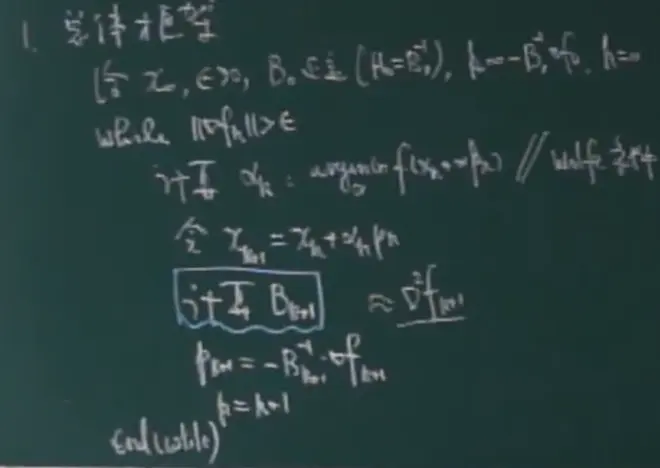 1. 总体框架
令 x₀, ϵ>0, B₀ 正定 (H₀=B₀⁻¹), p₀=-B₀⁻¹∇f₀, k=0
while ||∇fₖ||>ϵ
计算 αₖ: argmin f(xₖ+αpₖ) // Wolfe 条件
令 xₖ₊₁=xₖ+αₖpₖ
计算 Bₖ₊₁ ≈ ∇²fₖ₊₁
pₖ₊₁=-Bₖ₊₁⁻¹·∇fₖ₊₁
k=k+1
end(while)